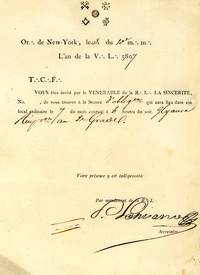 Or∴ de New-York, le 10e m∴ m∴
L'an de la V∴ L∴ 5807
T∴ C∴ F∴
VOUS êtes invité par le VENERABLE de la R∴ L∴ LA SINCERITE,
No. , de vous trouver à la Séance d'oblig∴ qui aura lieu dans son
local ordinaire le 7 du mois courant à 6 heures du soir.
au 2e Grade.
Votre présence y est indispensable
Par mandement de la R∴ L∴
Secrétaire.